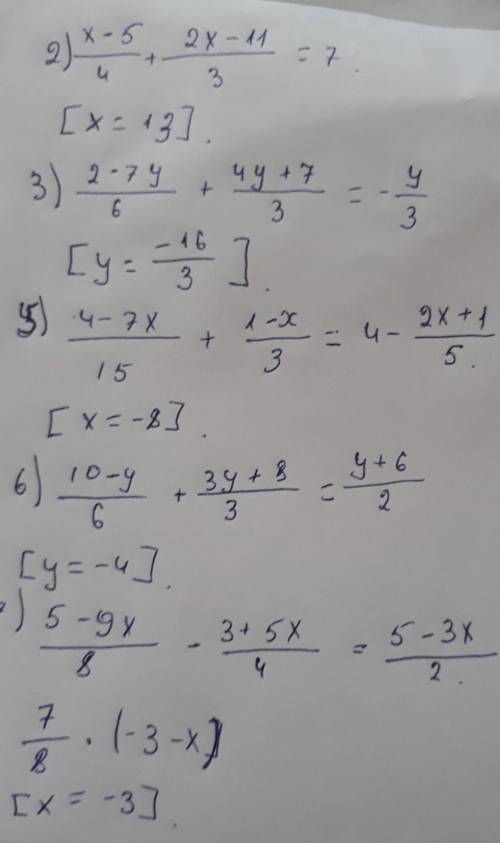 2) x-5/4 + 2x-11/3 = 7.
[x = 13].
3) 2-7y/6 + 4y+7/3 = -y/3
[y = -16/3].
5) 4-7x/15 + 1-x/3 = 4 - 2x+1/5.
[x = -8].
6) 10-y/6 + 3y+8/3 = y+6/2
[y = -4].
) 5-9x/8 - 3+5x/4 = 5-3x/2.
7/8 · (-3-x)
[x = -3].